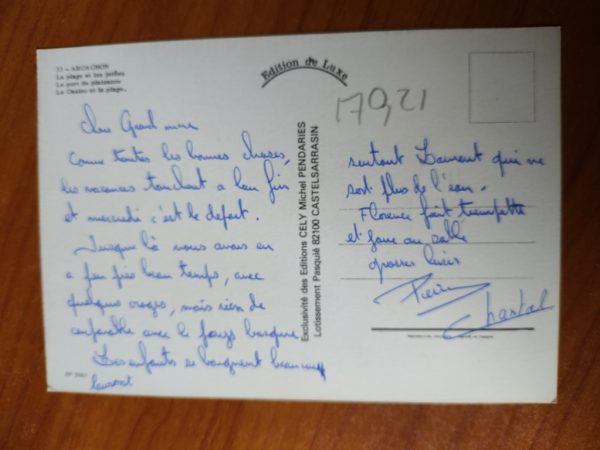 33 - ARCACHON
La plage et les jetées
Le port de plaisance
Le Casino et la plage.
Edition de Luxe
17921
Exclusivité des Editions CELY Michel PENDARIES
Lotissement Pasquié 82100 CASTELSARRASIN
Chere Grand mere
Comme toutes les bonnes choses,
les vacances touchent a leur fin
et mercredi c'est le depart.
Jusque là nous avons eu
a peu près beau temps, avec
quelques orages, mais rien de
comparable avec le pays basque
Les enfants se baignent beaucoup
surtout Laurent qui ne
sort plus de l'eau.
Florence fait trempette
et joue au sable
grosses bises
Pierre
Chantal
laurent